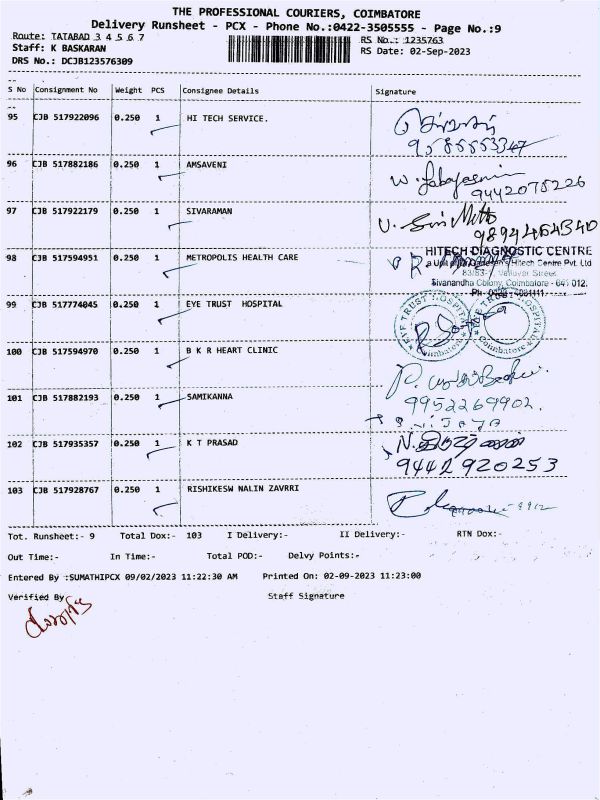 THE PROFESSIONAL COURIERS, COIMBATORE
Delivery Runsheet - PCX - Phone No.:0422-3505555 - Page No.:9
Route: TATABAD 3 4 5 6 7
RS No.: 1235763
Staff: K BASKARAN
RS Date: 02-Sep-2023
DRS No.: DCJB123576309
S No Consignment No Weight PCS Consignee Details Signature
95 CJB 517922096 0.250 1 HI TECH SERVICE.
9585553347
96 CJB 517882186 0.250 1 AMSAVENI
9442075226
97 CJB 517922179 0.250 1 SIVARAMAN
9894464340
98 CJB 517594951 0.250 1 METROPOLIS HEALTH CARE
HITECH DIAGNOSTIC CENTRE
Hitech Centre Pvt. Ltd
Street
Sivanandha Colony, Coimbatore - 641 012.
99 CJB 517774045 0.250 1 EYE TRUST HOSPITAL
EYE TRUST HOSPITAL Coimbatore
EYE TRUST HOSPITAL Coimbatore
100 CJB 517594970 0.250 1 B K R HEART CLINIC
101 CJB 517882193 0.250 1 SAMIKANNA
9952269902.
102 CJB 517935357 0.250 1 K T PRASAD
9442920253
103 CJB 517928767 0.250 1 RISHIKESW NALIN ZAVRRI
Tot. Runsheet:- 9 Total Dox:- 103 I Delivery:- II Delivery:- RTN Dox:-
Out Time:- In Time:- Total POD:- Delvy Points:-
Entered By :SUMATHIPCX 09/02/2023 11:22:30 AM Printed On: 02-09-2023 11:23:00
Verified By Staff Signature